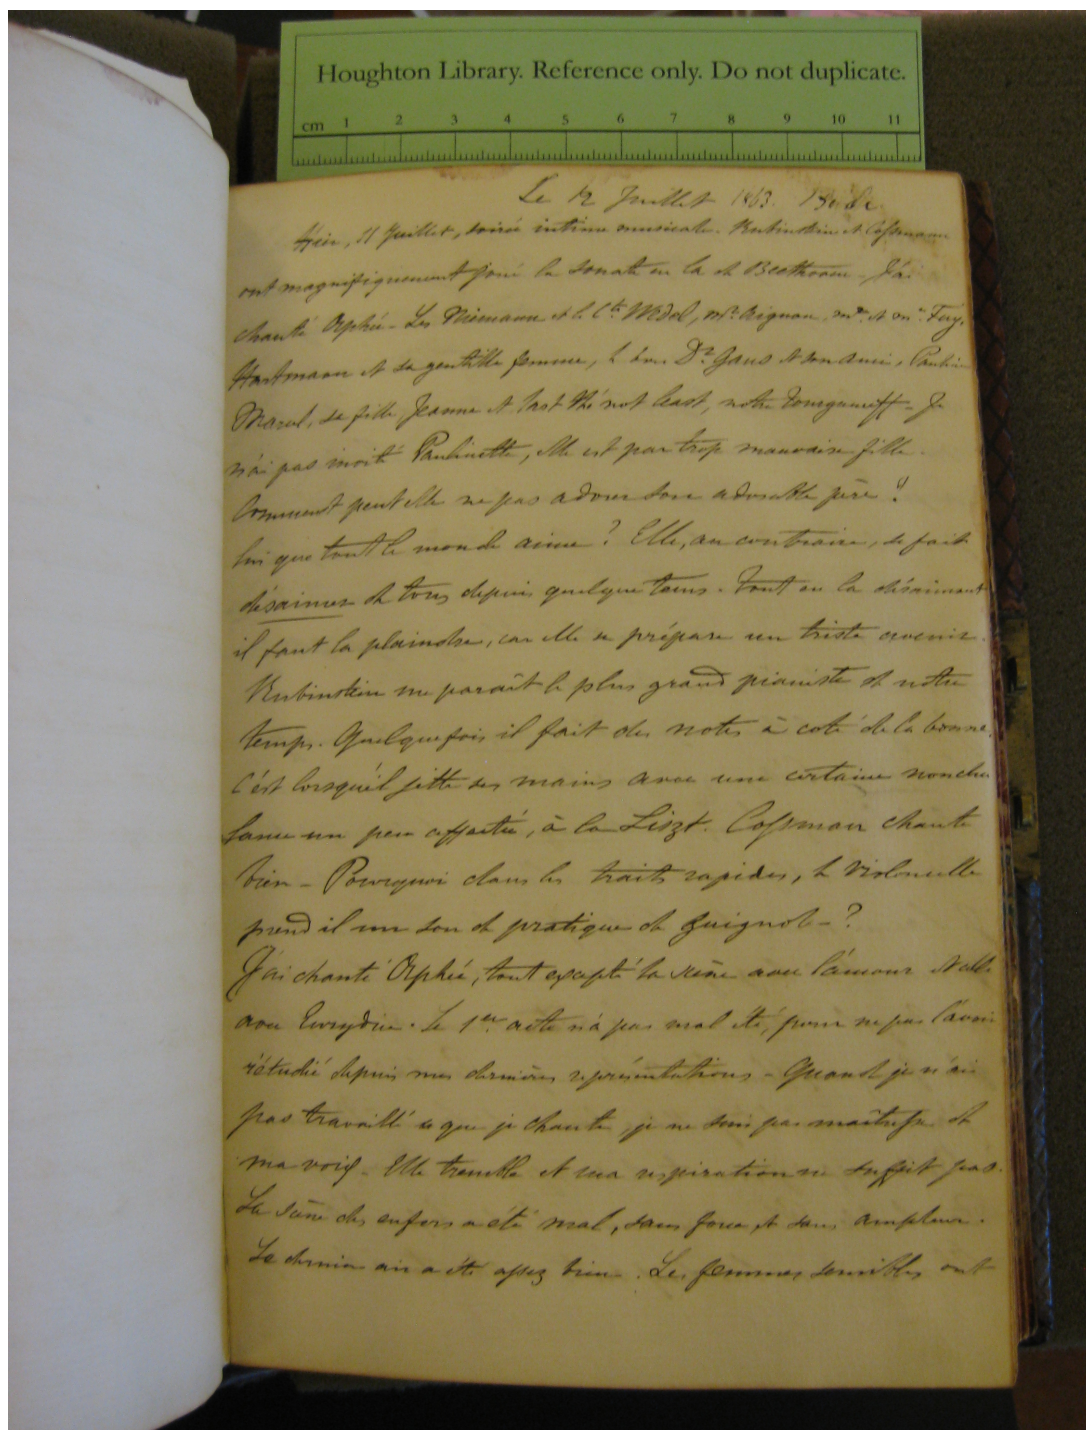 Houghton Library. Reference only. Do not duplicate.
cm 1 2 3 4 5 6 7 8 9 10 11
Le 12 Juillet 1863. Bade
Hier, 11 Juillet, soirée intime musicale. Rubinstein et Cossmann
ont magnifiquement joué la sonate en la de Beethoven. J'ai
chanté Orphée - Les Niemann et le Cte Wedel, et
Hartmann et sa gentille femme, le bon Dr Gaus et son ami, Pauline
sa fille Jeanne et last thé not least, notre Tourgueneff - Je
n'ai pas invité Paulinette, elle est par trop mauvaise fille.
Comment peut elle ne pas adorer son adorable père !
lui que tout le monde aime ? Elle, au contraire, se fait
désaimer de tous depuis quelque tems. Tout en la désaimant
il faut la plaindre, car elle se prépare un triste avenir.
Rubinstein me paraît le plus grand pianiste de notre
temps. Quelquefois il fait des notes à coté de la bonne.
C'est lorsqu'il jette ses mains avec une certaine noncha
lance un peu affectée, à la Liszt. Cossman chante
bien - Pourquoi dans les traits rapides, le violoncelle
prend il un son de pratique de guignol - ?
J'ai chanté Orphée, tout excepté la scène avec l'amour et celle
avec Eurydice. Le 1er acte n'a pas mal été, pour ne pas l'avoir
rétudié depuis mes dernières représentations - Quand je n'ai
pas travaillé ce que je chante, je ne suis pas maîtresse de
ma voix - Elle tremble et ma respiration ne suffit pas.
La scène des enfers a été mal, sans force et sans ampleur.
Le dernier air a été assez bien. Les femmes sensibles ont